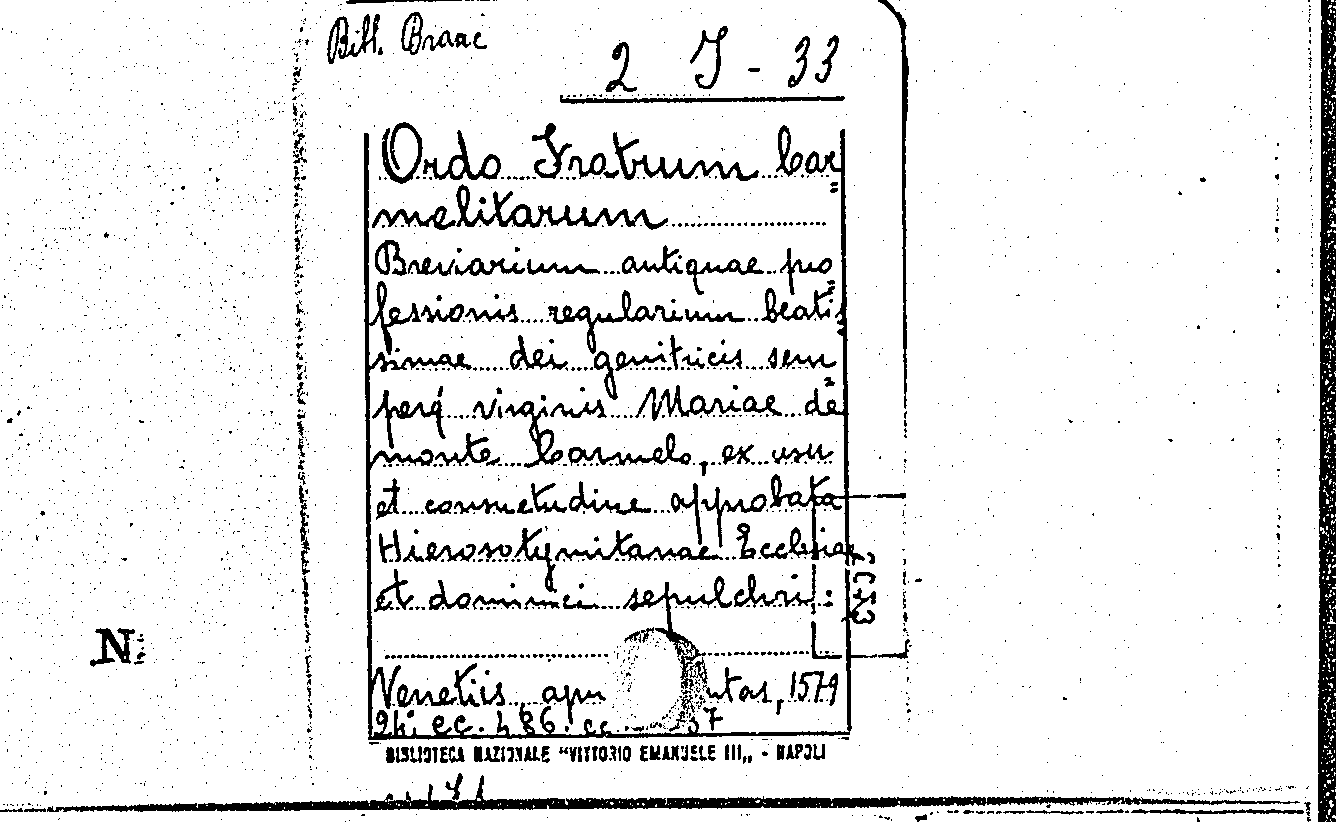 Bibl. Branc
2 J - 33
Ordo Fratrum Car=
melitarum
Breviarium antiquae pro=
fessionis regularium beatis=
simae dei genitricis sem=
perq́ virginis Mariae de
monte Carmelo, ex usu
et consuetudine approbata
Hierosolymitanae Ecclesiae
et dominici sepulchri:
Venetiis, 1579
24: cc. 486. cc.
BIBLIOTECA NAZIONALE "VITTORIO EMANUELE III„ - NAPOLI
N: